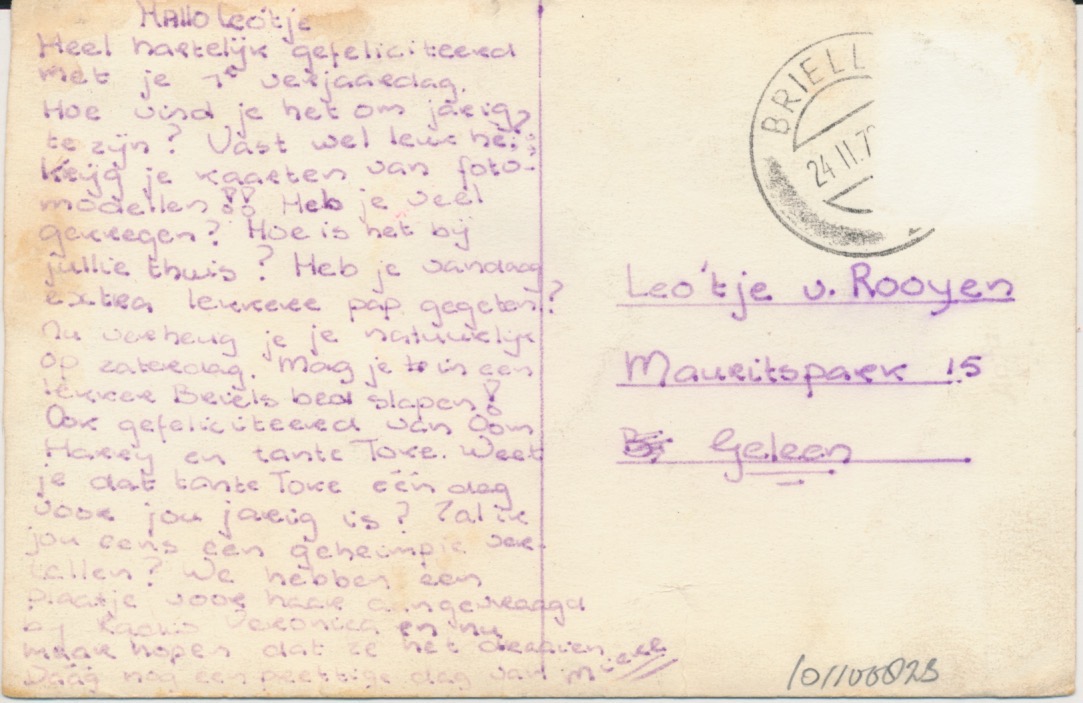 Hallo Leo'tje
Heel hartelijk gefeliciteerd
met je 1e verjaardag.
Hoe vind je het om jarig
te zijn? Vast wel leuk hè?
Krijg je kaarten van foto-
modellen!! Heb je veel
gekregen? Hoe is het bij
jullie thuis? Heb je vandaag
extra lekkere pap gegeten?
Nu verheug je je natuurlijk
op zaterdag. Mag je in een
lekker Briels bed slapen!
Ook gefeliciteerd van Oom
Harry en tante Toke. Weet
je dat tante Toke één dag
voor jou jarig is? Zal ik
jou eens een geheimpje ver-
tellen? We hebben een
plaatje voor haar aangevraagd
bij Radio Veronica en nu
maar hopen dat ze het draaien
Dáág nog een prettige dag van Mieke
BRIELL
24.II.7
Leo'tje v. Rooyen
Mauritspark 15
Geleen
101106823